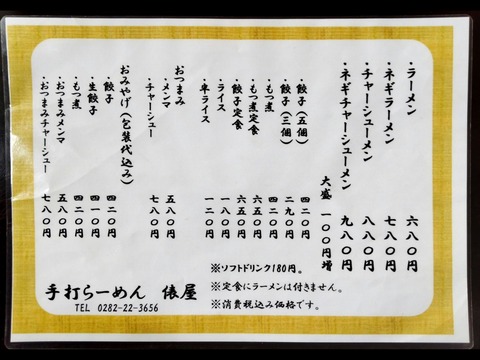 ・ラーメン 六八〇円
・ネギラーメン 七八〇円
・チャーシューメン 八八〇円
・ネギチャーシューメン 九八〇円
大盛 一〇〇円増
・餃子（五個） 四二〇円
・餃子（三個） 二九〇円
・もつ煮 四二〇円
・もつ煮定食 六五〇円
・餃子定食 六五〇円
・ライス 一八〇円
・半ライス 一二〇円
おつまみ
・メンマ 五八〇円
・チャーシュー 七八〇円
おみやげ（包装代込み）
・餃子 四二〇円
・生餃子 四一〇円
・もつ煮 四二〇円
・おつまみメンマ 五八〇円
・おつまみチャーシュー 七八〇円
※ソフトドリンク180円。
※定食にラーメンは付きません。
※消費税込み価格です。
手打らーめん 俵屋
TEL 0282-22-3656